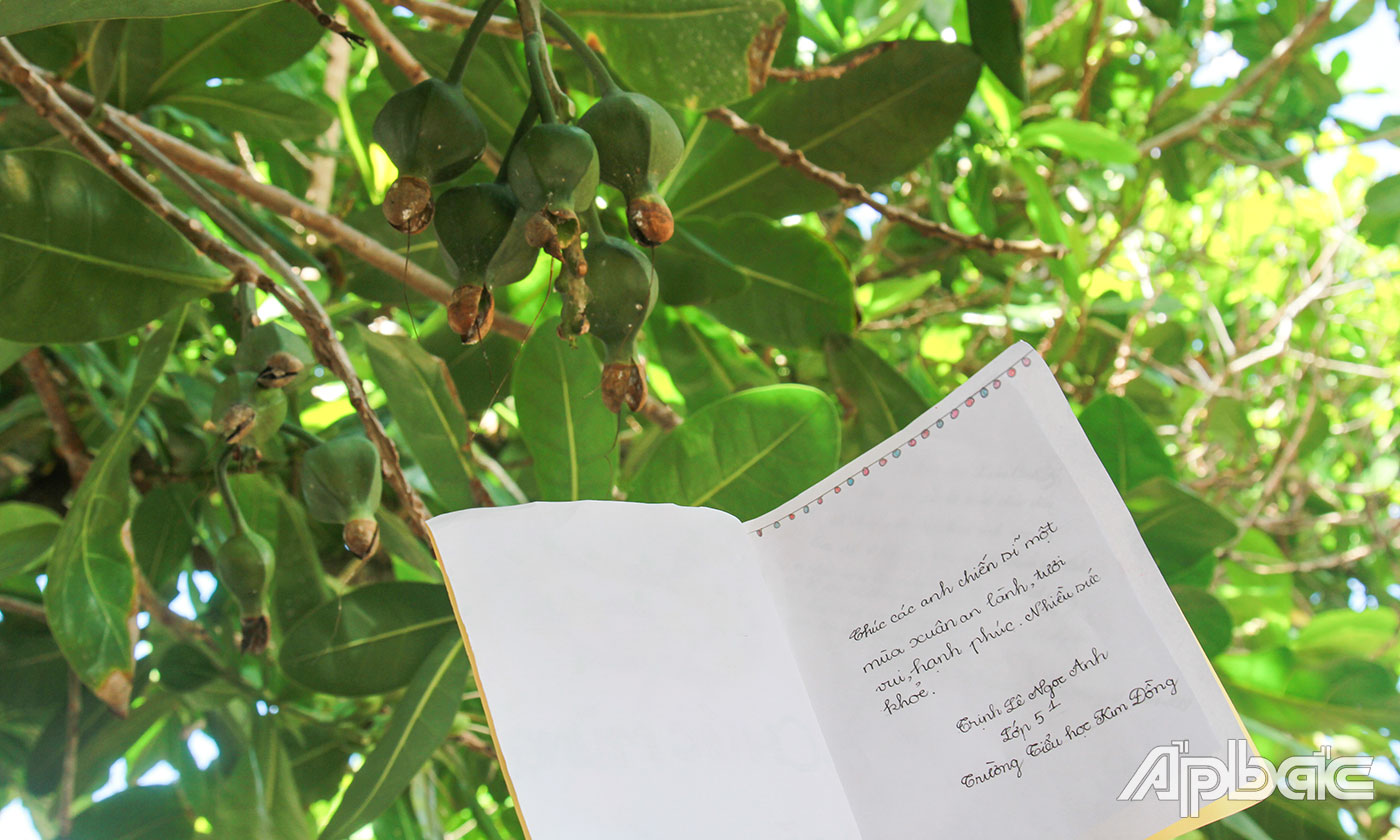 Chúc các anh chiến sĩ một
mùa xuân an lành, tươi
vui, hạnh phúc. Nhiều sức
khoẻ.
Trịnh Lê Ngọc Anh
Lớp 5.1
Trường Tiểu học Kim Đồng
Apbắc